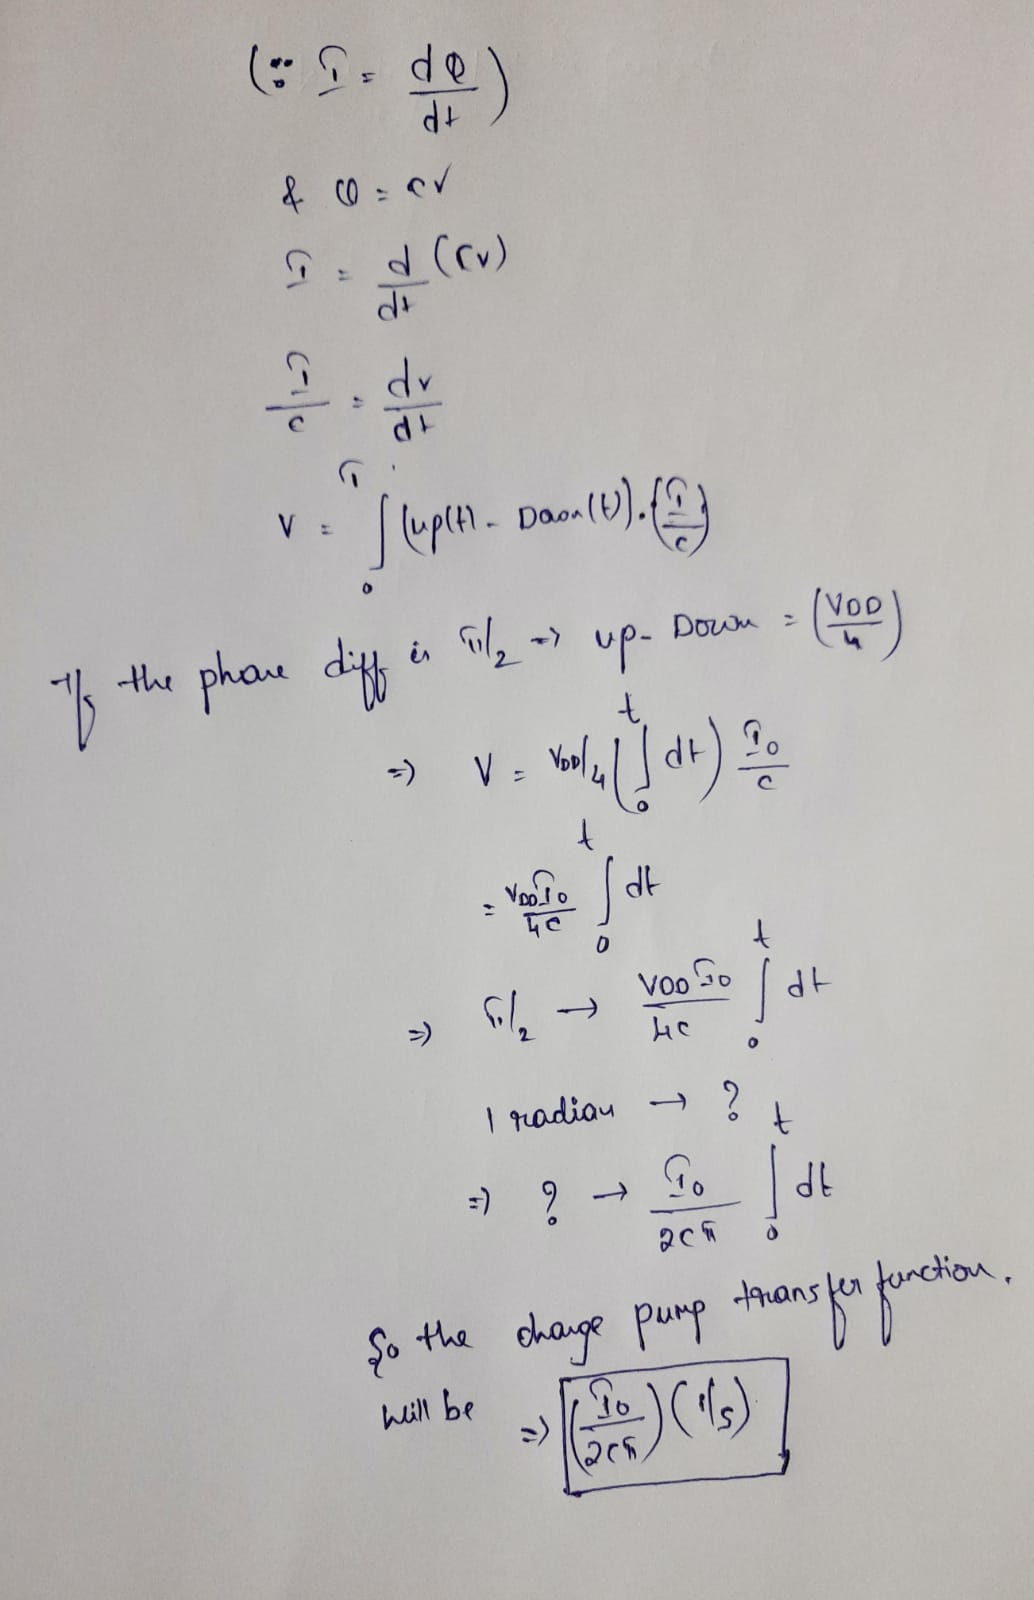 (∵ I = dQ/dt)
& Q = CV
I = d/dt (CV)
I/C = dV/dt
V = ∫₀ᵀ (up(t) - Down(t)).{I/C}
If the phase diff is π/2 => up - Down = (VDD/4)
=> V = VDD/4 (∫₀ᵗ dt) I₀/C
= VDD I₀/4C ∫₀ᵗ dt
=> π/2 → VDD I₀/4C ∫₀ᵗ dt
1 radian → ?
=> ? → I₀/2Cπ ∫₀ᵗ dt
So the charge pump transfer function.
will be => (I₀/2Cπ)(1/s)